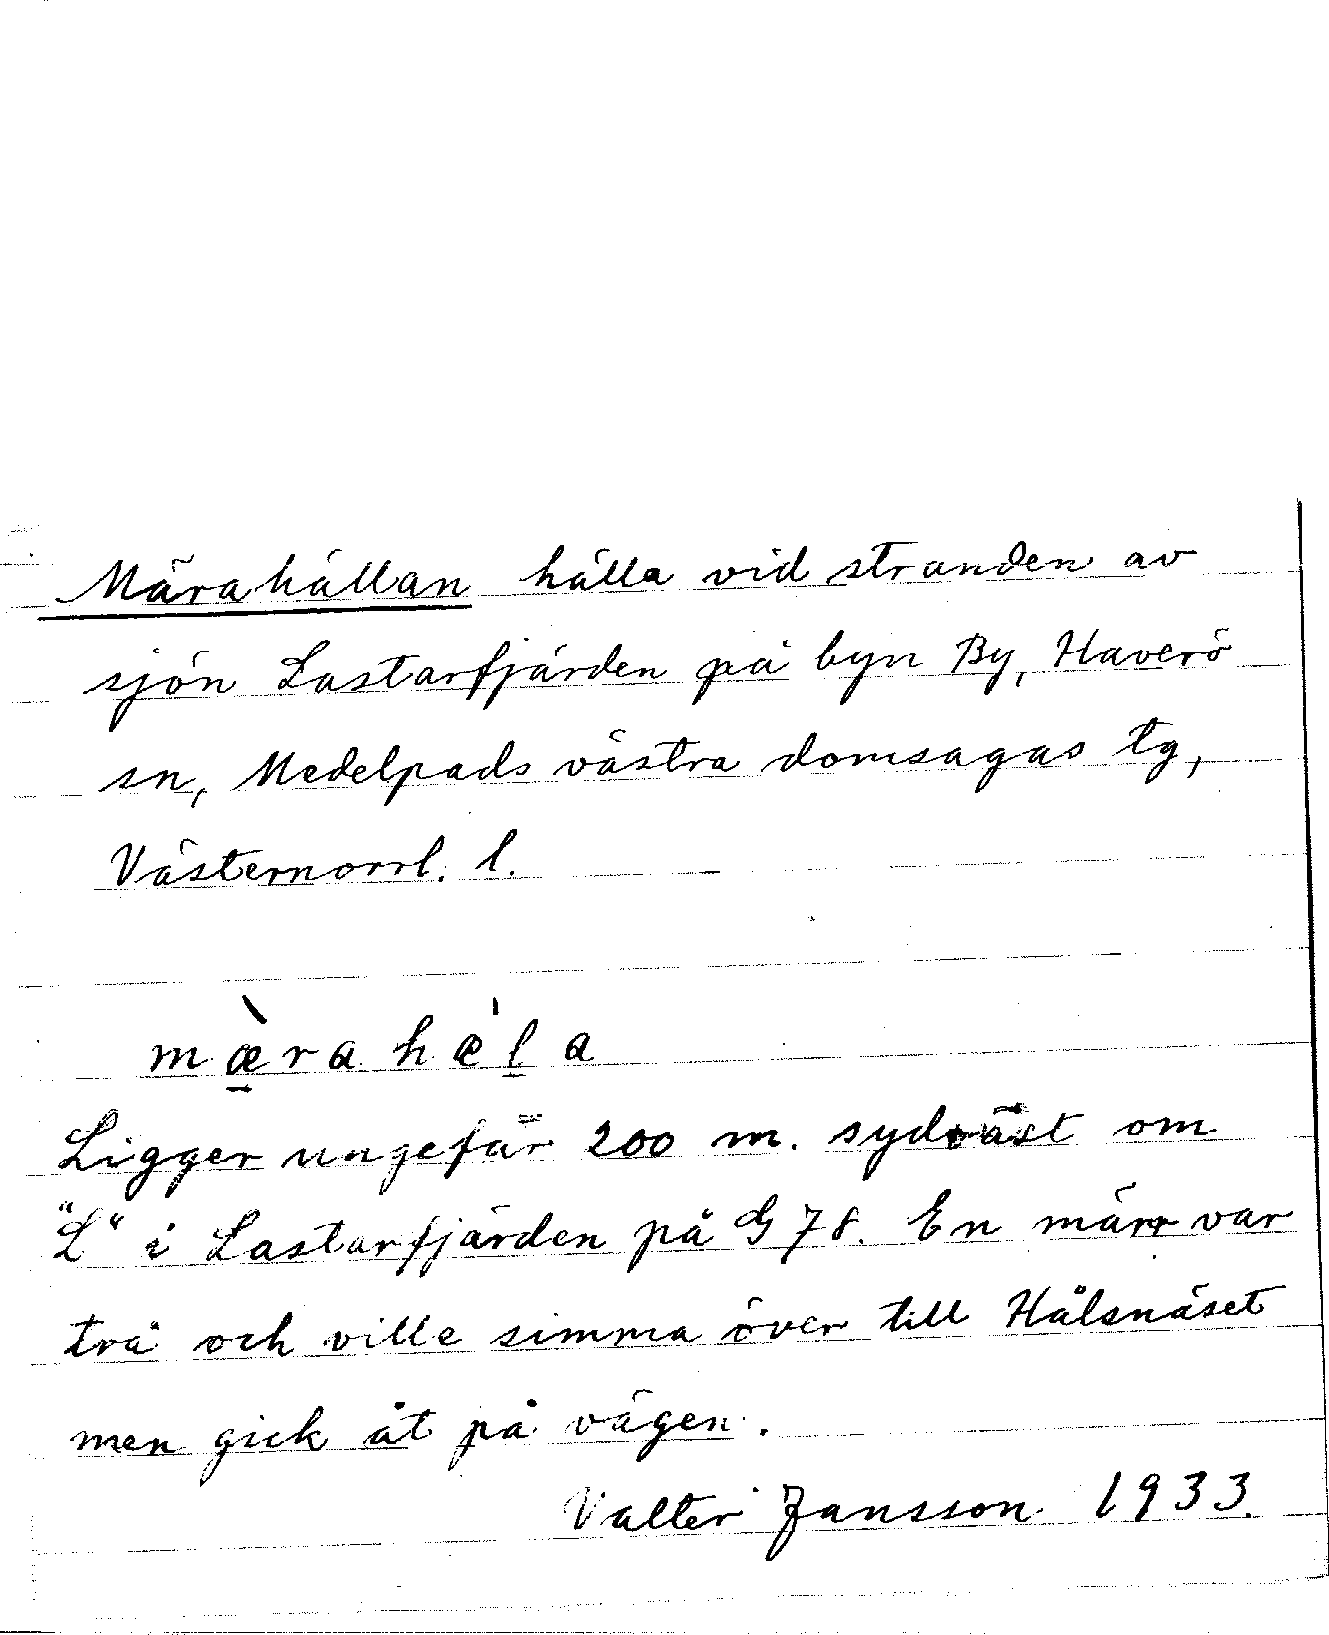 Märahällan hälla vid stranden av
sjön Lastarfjärden på byn By, Haverö
sn, Medelpads västra domsagas tg,
Västernorrl. l.
mæ̀rahæ̀la
Ligger ungefär 200 m. sydväst om
"L" i Lastarfjärden på G 78. En märr var
trå och ville simma över till Hålsnäset
men gick åt på vägen.
Valter Jansson 1933.